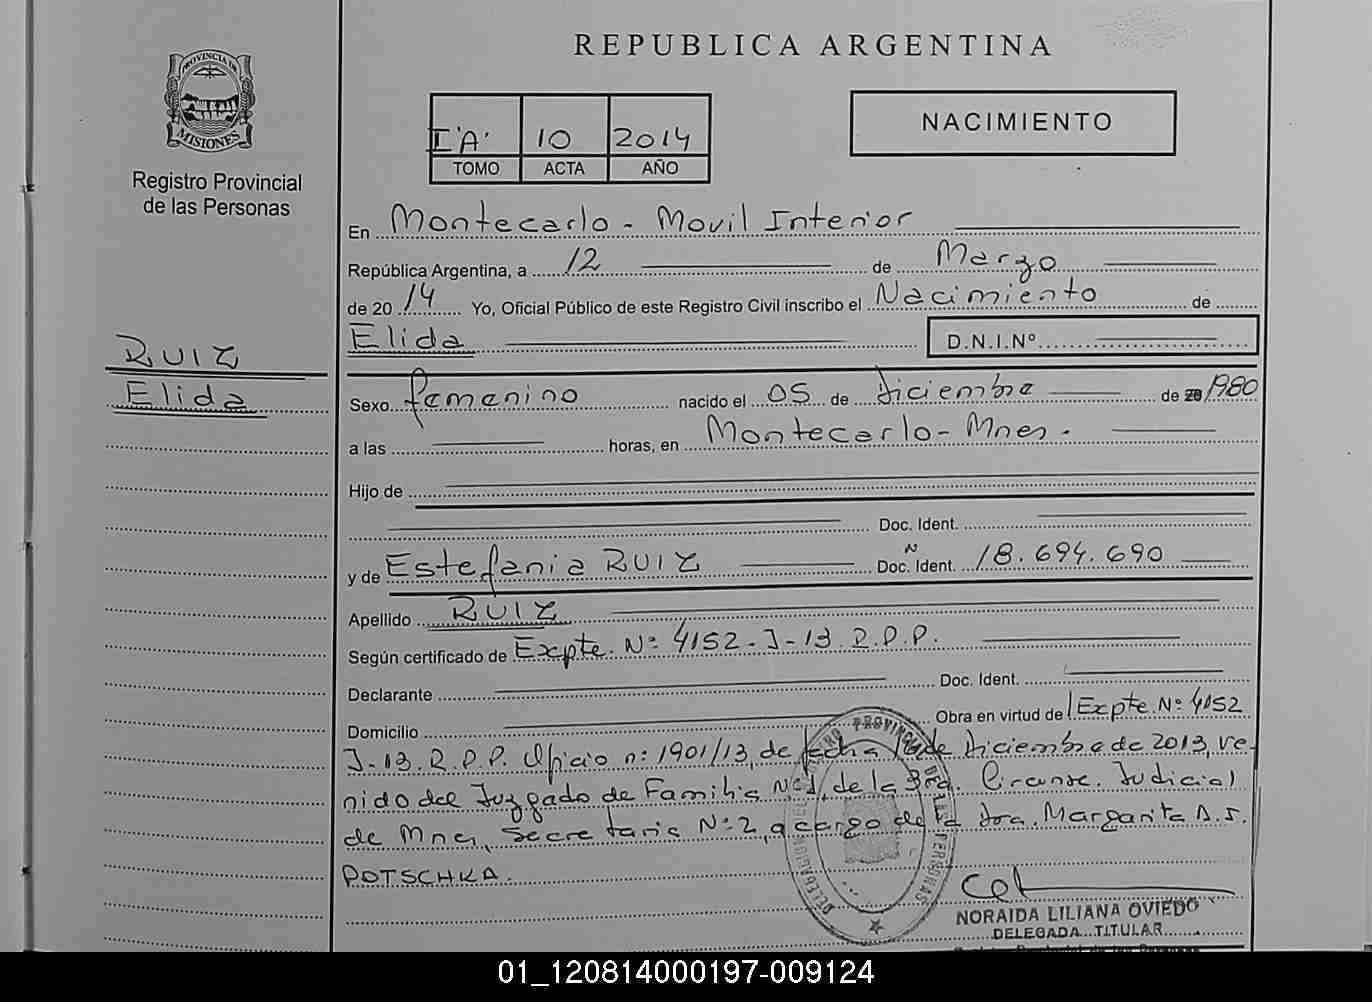 REPUBLICA ARGENTINA
PROVINCIA DE
MISIONES
Registro Provincial
de las Personas
I "A" 10 2014
TOMO ACTA AÑO
NACIMIENTO
En Montecarlo - Movil Interior
República Argentina, a 12 de Marzo
de 2014 Yo, Oficial Público de este Registro Civil inscribo el Nacimiento de
Elida D.N.I.Nº
RUIZ
Elida
Sexo femenino nacido el 05 de diciembre de 20 1980
a las horas, en Montecarlo - Mnes.
Hijo de
Doc. Ident.
y de Estefania RUIZ Doc. Ident. Nº 18.694.690
Apellido RUIZ
Según certificado de Expte. Nº 4152-J-13.R.P.P.
Declarante Doc. Ident.
Domicilio Obra en virtud de Expte. Nº 4152
J-13.R.P.P. Oficio nº 1901/13, de fecha de diciembre de 2013, ve-
nido del Juzgado de Familia Nº1, de la 3ra. Circunsc. Judicial
de Mnes, Secretaria Nº2, a cargo de la dra. Margarita A.S.
POTSCHKA.
NORAIDA LILIANA OVIEDO
DELEGADA TITULAR
01_120814000197-009124